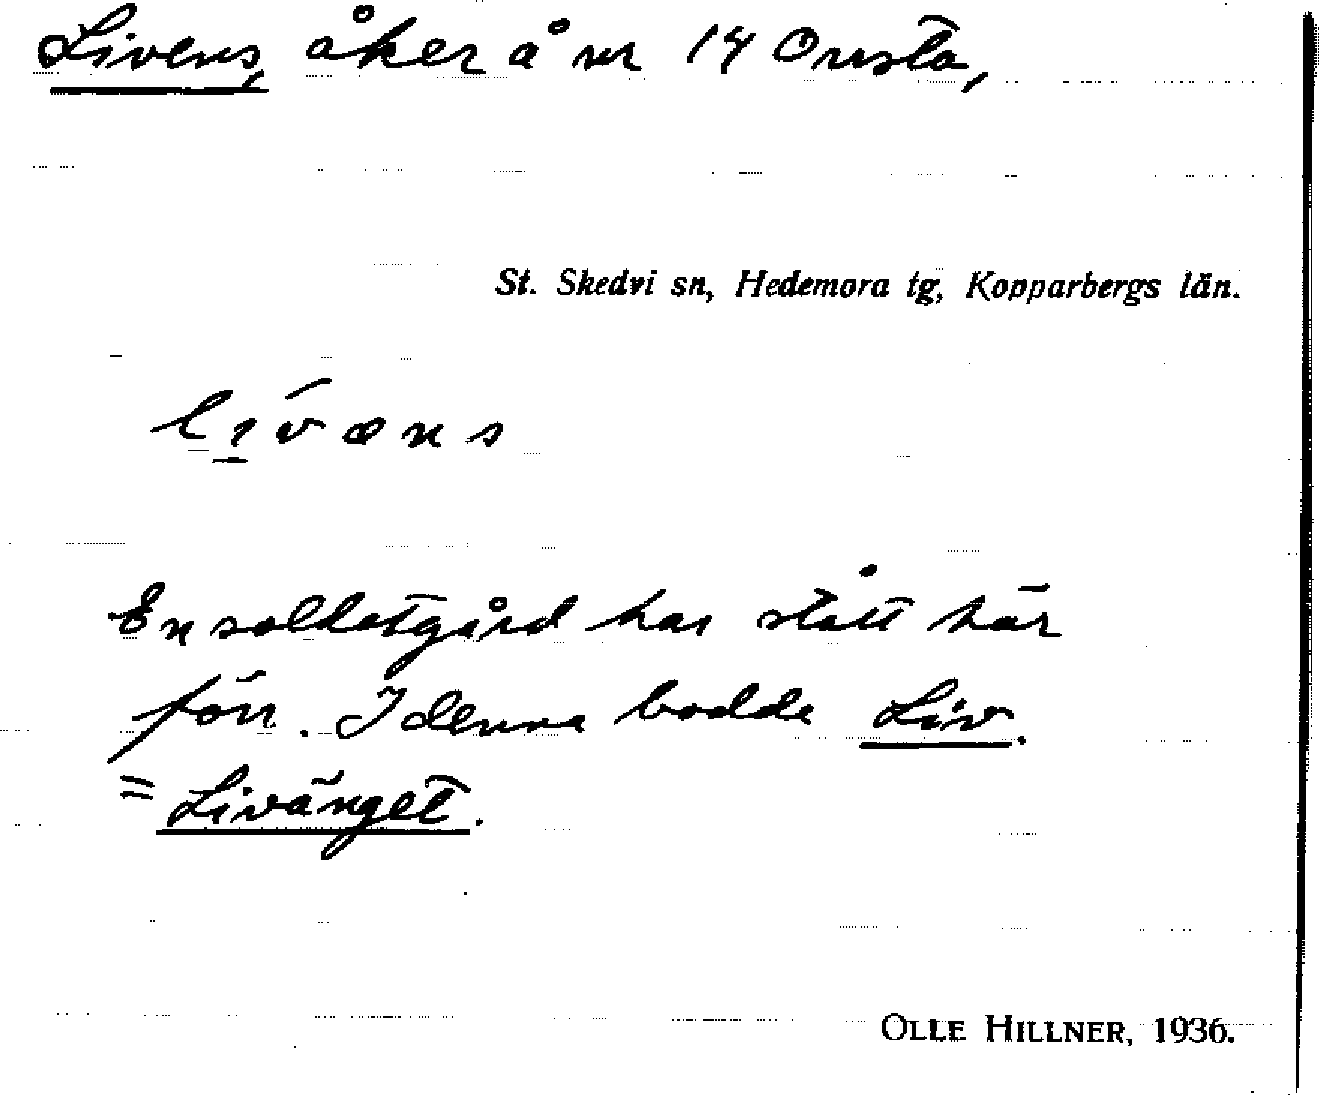 Livens, åker å nr 14 Onsta,
St. Skedvi sn, Hedemora tg, Kopparbergs län.
lı́vəns
En soldatgård har stått här
förr. I denna bodde Liv.
= Livänget.
OLLE HILLNER, 1936.